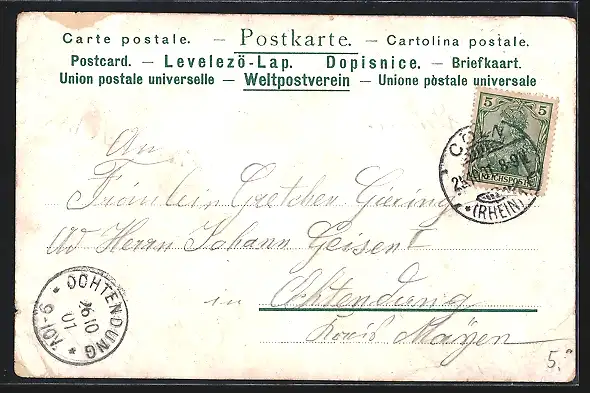 Carte postale. — Postkarte. — Cartolina postale.
Postcard. — Levelezö-Lap. Dopisnice. — Briefkaart.
Union postale universelle — Weltpostverein — Unione pòstale universale
5 5
REICHSPOST
COELN
8-9V.
* (RHEIN)
An
Fräulein Gretchen Giering
Ad Herrn Johann Geisen
in Ochtendung
Kreis Mayen
* OCHTENDUNG *
26 10
01
9-10V.
5.